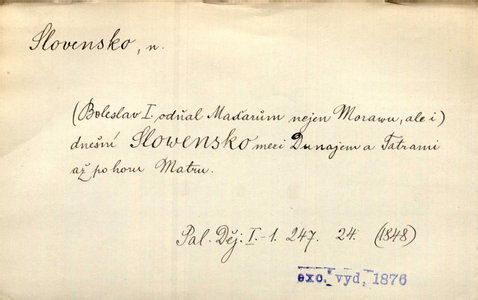 Slovensko, n.
(Boleslav I. odňal Maďarům nejen Morawu, ale i)
dnešní Slowensko mezi Dunajem a Tatrami
až po horu Matru.
Pal. Děj. I.-1. 247. 24. (1848)
exc. vyd, 1876